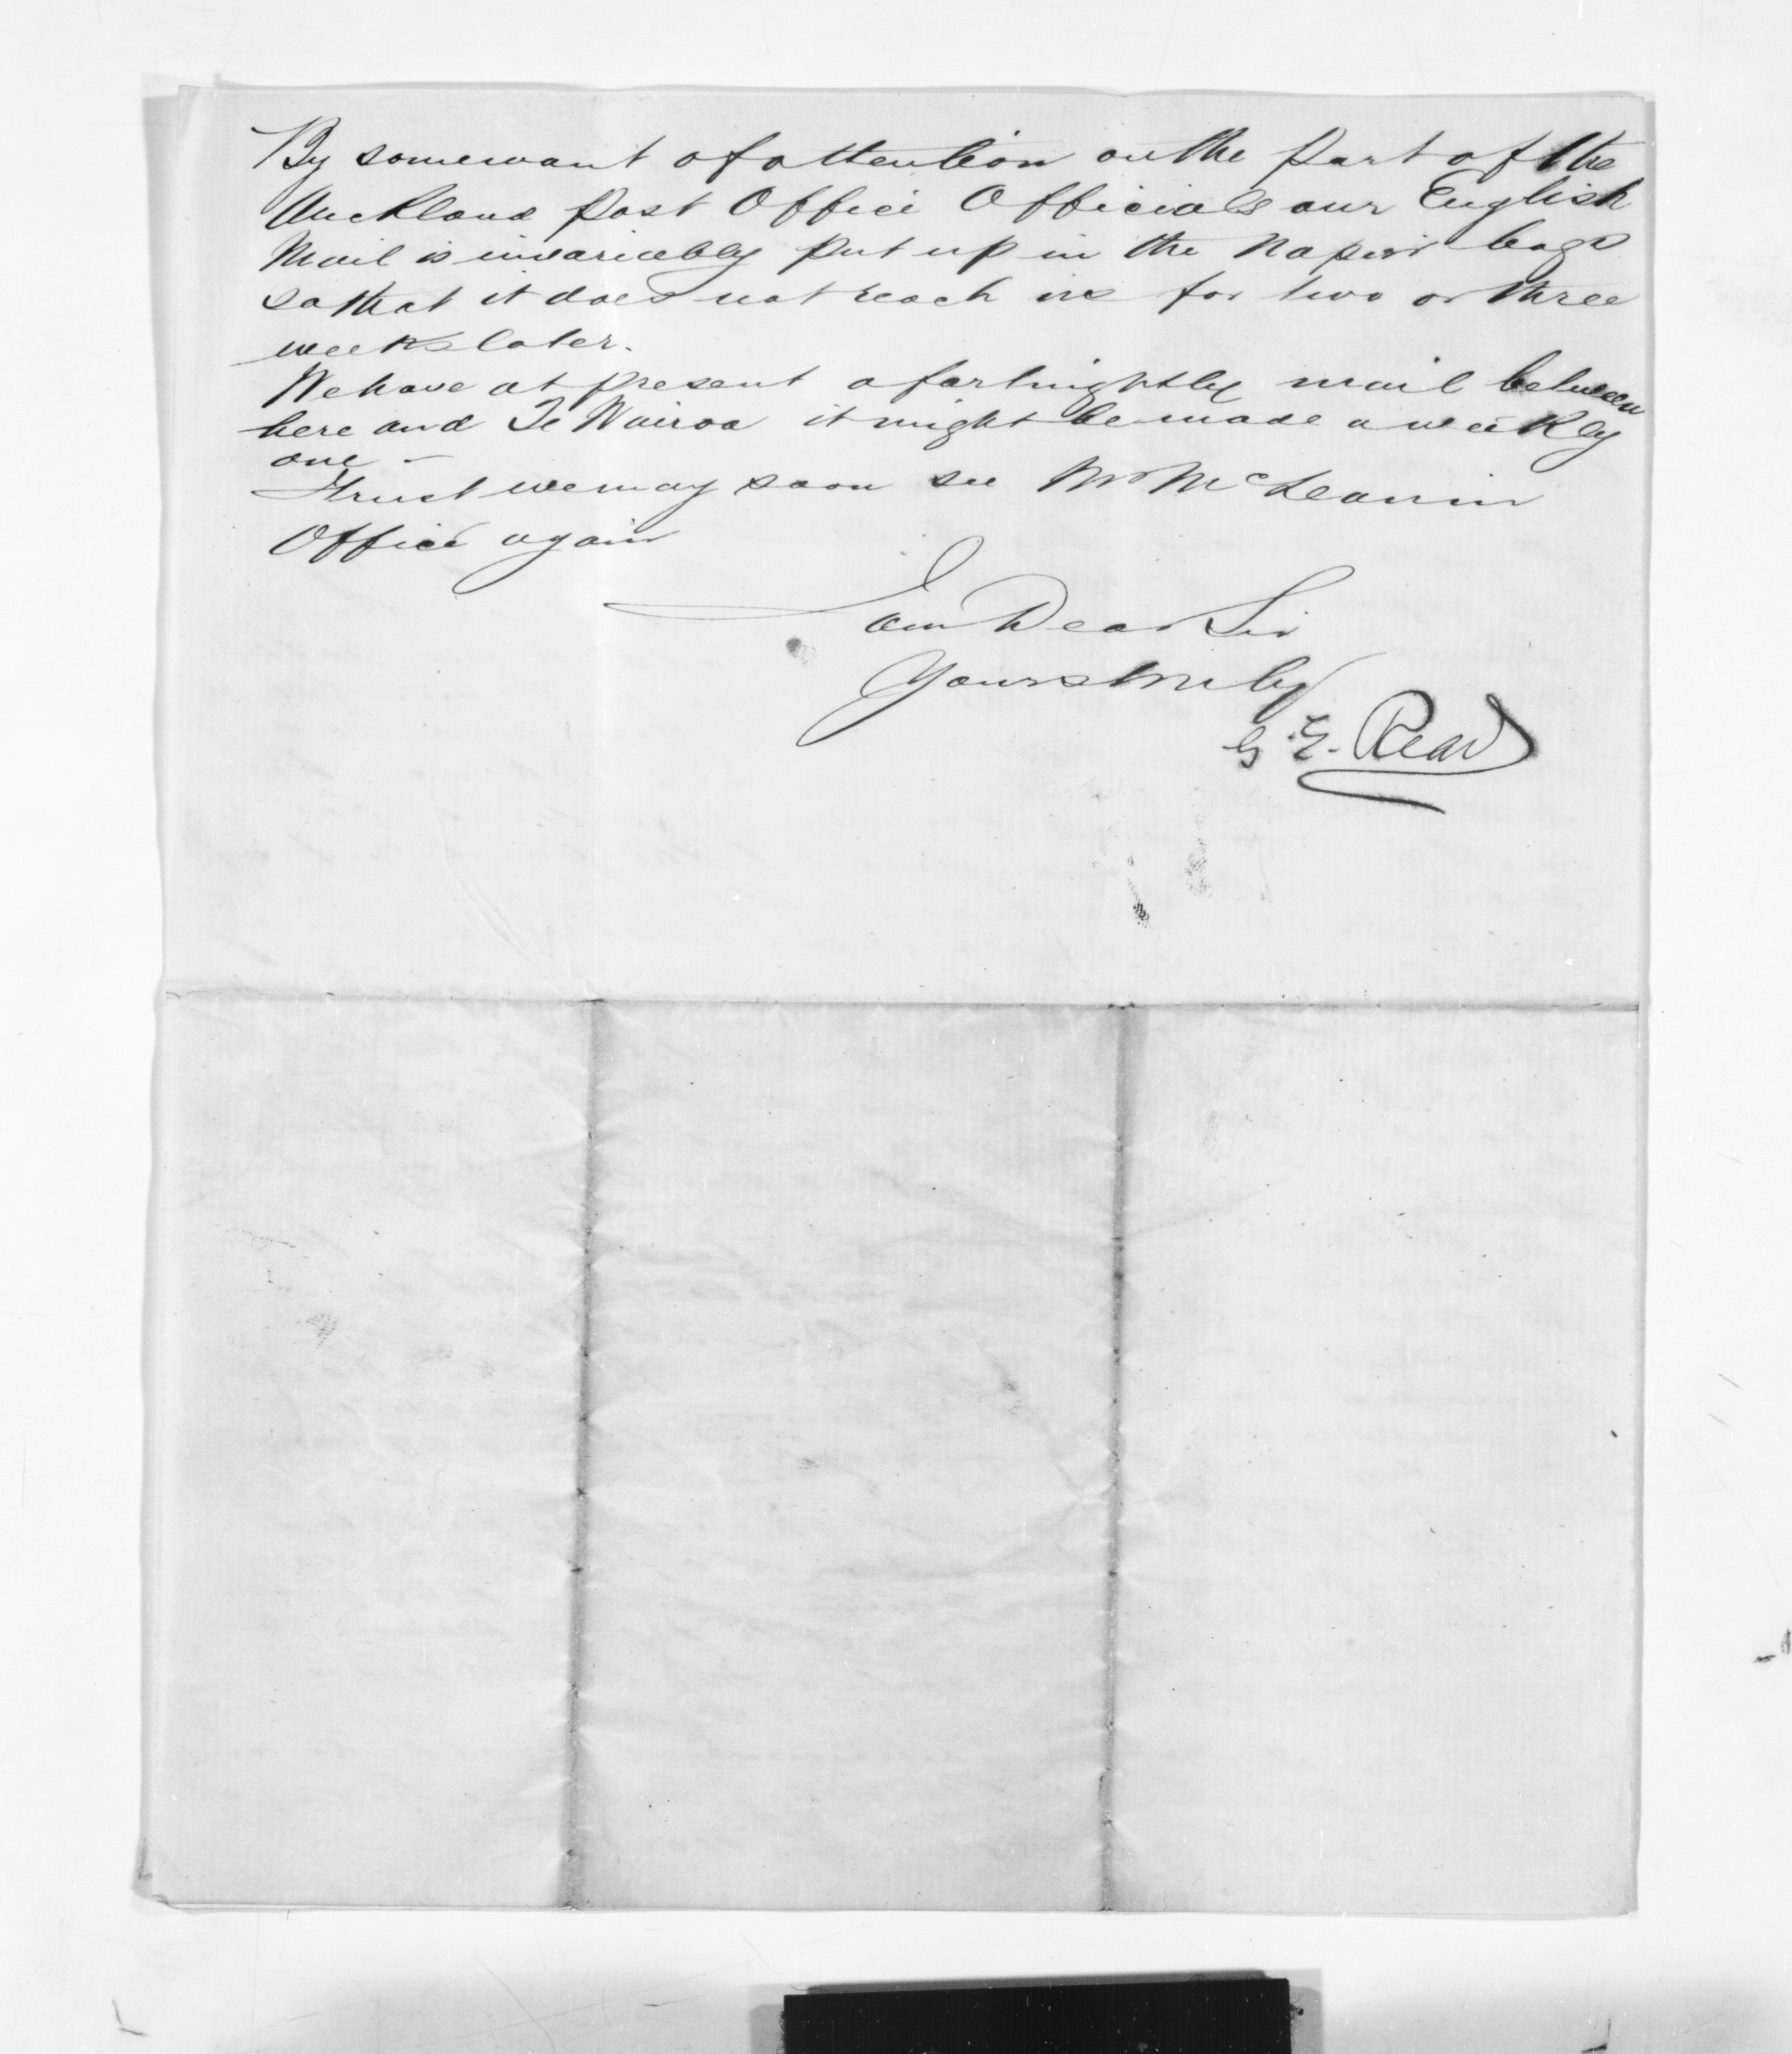 By some want of attention on the part of the
Auckland Post Office Officials our English
Mail is invariably put up in the Napier bags
so that it does not reach us for two or three
weeks later.
We have at present a fortnightly mail between
here and Te Wairoa it might be made a weekly
one -
Trust we may soon see Mr McLean in
Office again
I am Dear Sir
Yours truly
G. E. Read